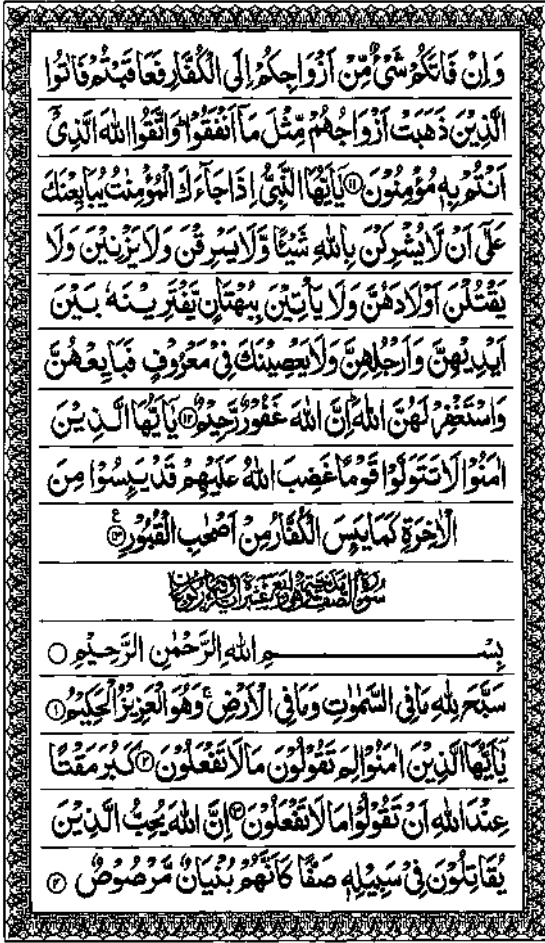 وَاِنْ فَاتَكُمْ شَیْءٌ مِّنْ اَزْوَاجِكُمْ اِلَی الْكُفَّارِ فَعَاقَبْتُمْ فَاٰتُوا
الَّذِیْنَ ذَهَبَتْ اَزْوَاجُهُمْ مِّثْلَ مَاۤ اَنْفَقُوْا ؕ وَاتَّقُوا اللّٰهَ الَّذِیْۤ
اَنْتُمْ بِهٖ مُؤْمِنُوْنَ ۝۱۱ یٰۤاَیُّهَا النَّبِیُّ اِذَا جَآءَكَ الْمُؤْمِنٰتُ یُبَایِعْنَكَ
عَلٰۤی اَنْ لَّا یُشْرِكْنَ بِاللّٰهِ شَیْـًٔا وَّلَا یَسْرِقْنَ وَلَا یَزْنِیْنَ وَلَا
یَقْتُلْنَ اَوْلَادَهُنَّ وَلَا یَاْتِیْنَ بِبُهْتَانٍ یَّفْتَرِیْنَهٗ بَیْنَ
اَیْدِیْهِنَّ وَاَرْجُلِهِنَّ وَلَا یَعْصِیْنَكَ فِیْ مَعْرُوْفٍ فَبَایِعْهُنَّ
وَاسْتَغْفِرْ لَهُنَّ اللّٰهَ ؕ اِنَّ اللّٰهَ غَفُوْرٌ رَّحِیْمٌ ۝۱۲ یٰۤاَیُّهَا الَّذِیْنَ
اٰمَنُوْا لَا تَتَوَلَّوْا قَوْمًا غَضِبَ اللّٰهُ عَلَیْهِمْ قَدْ یَىِٕسُوْا مِنَ
الْاٰخِرَةِ كَمَا یَىِٕسَ الْكُفَّارُ مِنْ اَصْحٰبِ الْقُبُوْرِ ۝۱۳
بِسْمِ اللّٰهِ الرَّحْمٰنِ الرَّحِیْمِ ۝
سَبَّحَ لِلّٰهِ مَا فِی السَّمٰوٰتِ وَمَا فِی الْاَرْضِ ۚ وَهُوَ الْعَزِیْزُ الْحَكِیْمُ ۝۱
یٰۤاَیُّهَا الَّذِیْنَ اٰمَنُوْا لِمَ تَقُوْلُوْنَ مَا لَا تَفْعَلُوْنَ ۝۲ كَبُرَ مَقْتًا
عِنْدَ اللّٰهِ اَنْ تَقُوْلُوْا مَا لَا تَفْعَلُوْنَ ۝۳ اِنَّ اللّٰهَ یُحِبُّ الَّذِیْنَ
یُقَاتِلُوْنَ فِیْ سَبِیْلِهٖ صَفًّا كَاَنَّهُمْ بُنْیَانٌ مَّرْصُوْصٌ ۝۴